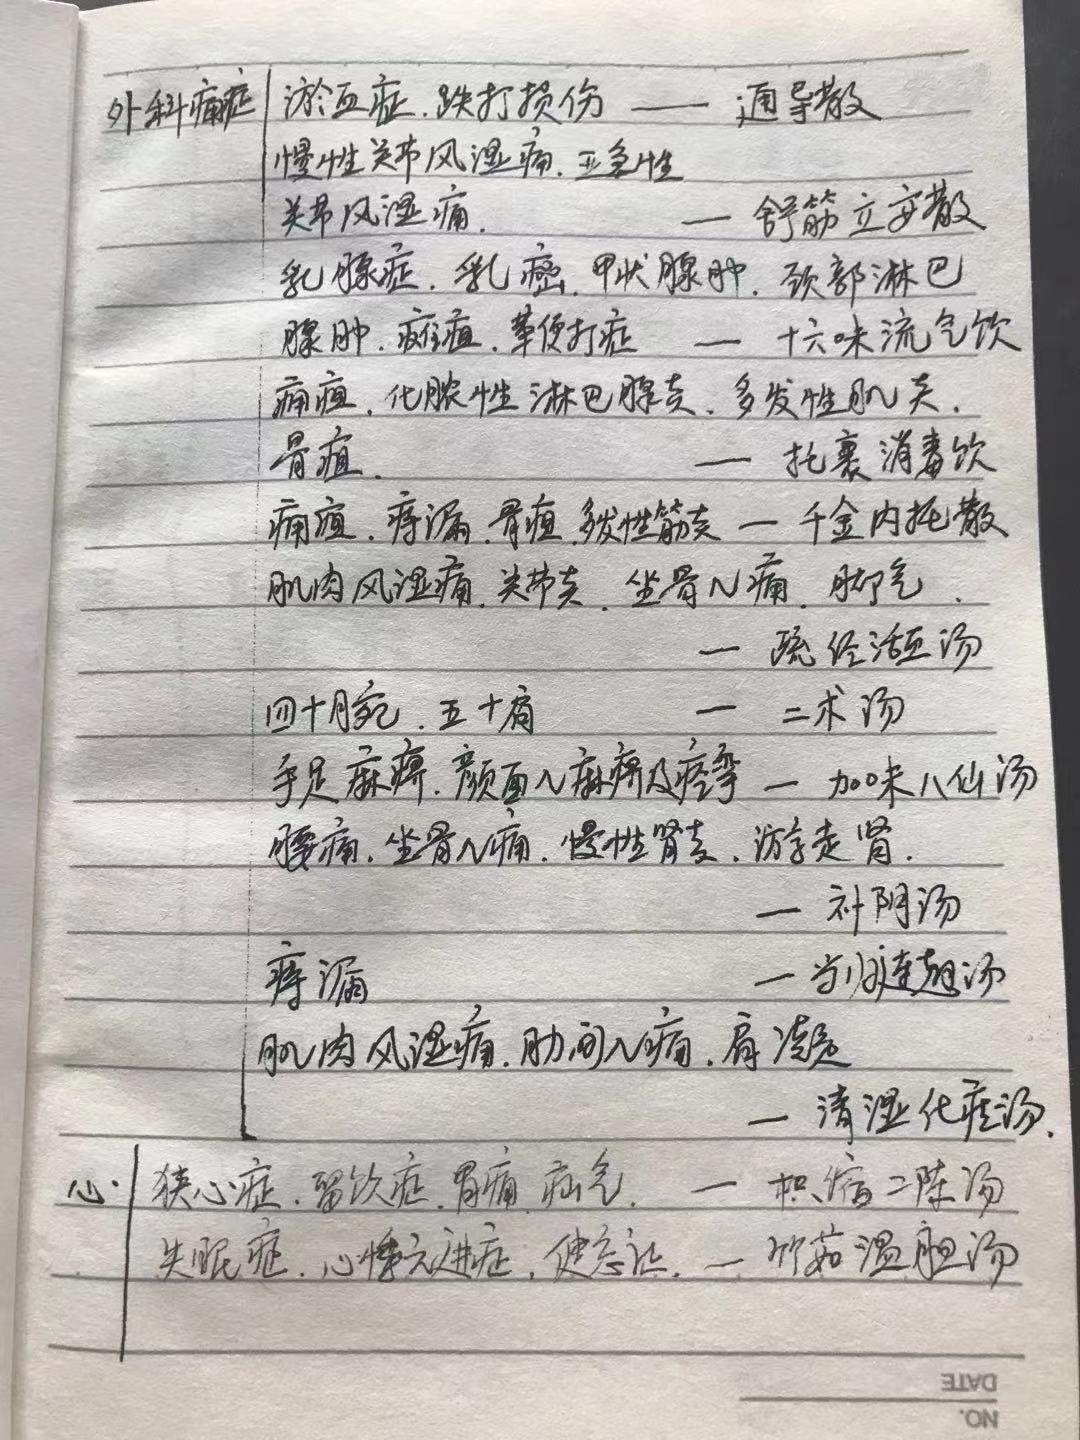 外科痛症 淤血症、跌打损伤 —— 通导散
慢性关节风湿痛、亚急性
关节风湿痛. — 舒筋立安散
乳腺症、乳癌、甲状腺肿、颈部淋巴
腺肿、瘫疽、 — 十六味流气饮
痈疽、化脓性淋巴腺炎、多发性肌炎、
骨疽. — 托裹消毒饮
痈疽、痔漏、骨疽、多发性筋炎 — 千金内托散
肌肉风湿痛、关节炎、坐骨N痛、脚气、
— 疏经活血汤
四十腕、五十肩 — 二术汤
手足麻痹、颜面N麻痹及痉挛 — 加味八仙汤
腰痛、坐骨N痛、慢性肾炎、游走肾.
— 补阴汤
痔漏 — 当归连翘汤
肌肉风湿痛、肋间N痛、肩凝
— 清湿化痰汤.
心. 狭心症、留饮症、胃痛、疝气. — 枳缩二陈汤
失眠症、心悸亢进症、健忘症. — 竹茹温胆汤
DATE
NO.